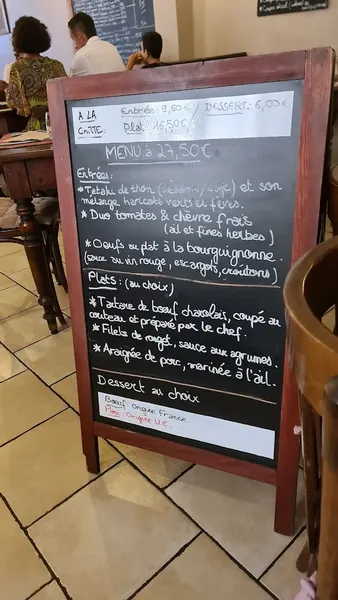 A LA CARTE:
Entrée: 9,50€ / DESSERT: 6,00€
Plat: 16,50€
MENU à 27,50€
Entrées:
* Tataki de thon (sésame/soja) et son
mélange haricots verts et fèves.
* Duo tomates & chèvre frais
(ail et fines herbes)
* Oeufs au plat à la bourguignonne
(sauce au vin rouge, escargots, croûtons)
Plats: (au choix)
* Tartare de boeuf charolais, coupé au
couteau et préparé par le chef.
* Filets de rouget, sauce aux agrumes.
* Araignée de porc, marinée à l'ail.
Dessert au choix
Boeuf: Origine France
Porc: Origine U.E.